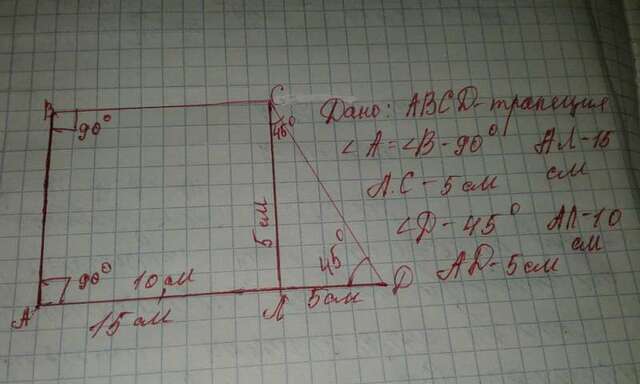 B
90°
C
45°
5 см
90°
10 см
45°
A
15 см
Л
5 см
D
Дано: ABCD - трапеция
∠A = ∠B - 90° АЛ - 15 см
Л.С - 5 см
∠D - 45° АЛ - 10 см
ЛD - 5 см